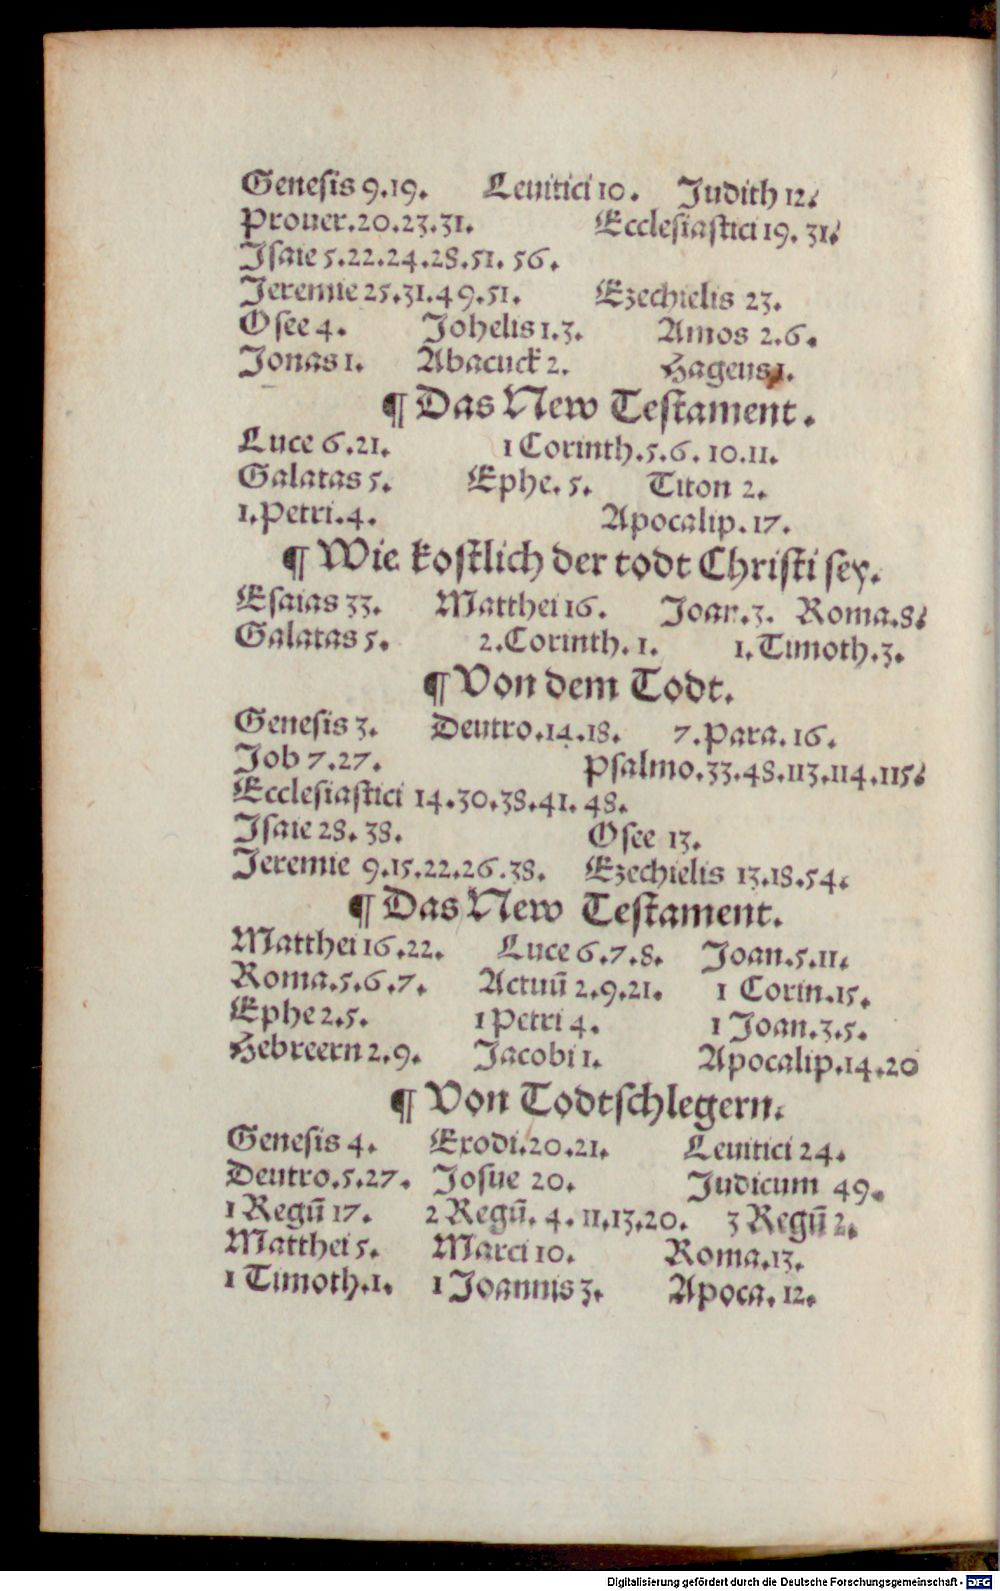 Genesis 9.19. Leuitici 10. Judith 12.
Prouer.20.23.31. Ecclesiastici 19. 31.
Jsaie 5.22.24.28.51. 56.
Jeremie 25.31.49.51. Ezechielis 23.
Osee 4. Johelis 1.3. Amos 2.6.
Jonas 1. Abacuck 2. Hageus 1.
¶ Das New Testament.
Luce 6.21. 1 Corinth.5.6. 10.11.
Galatas 5. Ephe. 5. Titon 2.
1.Petri.4. Apocalip. 17.
¶ Wie kostlich der todt Christi sey.
Esaias 33. Matthei 16. Joan.3. Roma.8.
Galatas 5. 2.Corinth. 1. 1.Timoth.3.
¶ Von dem Todt.
Genesis 3. Deutro.14.18. 7.Para. 16.
Job 7.27. Psalmo.33.48.113.114.115.
Ecclesiastici 14.30.38.41. 48.
Jsaie 28. 38. Osee 13.
Jeremie 9.15.22.26.38. Ezechielis 13.18.54.
¶ Das New Testament.
Matthei 16.22. Luce 6.7.8. Joan.5.11.
Roma.5.6.7. Actuū 2.9.21. 1 Corin.15.
Ephe 2.5. 1 Petri 4. 1 Joan.3.5.
Hebreern 2.9. Jacobi 1. Apocalip.14.20
¶ Von Todtschlegern.
Genesis 4. Exodi.20.21. Leuitici 24.
Deutro.5.27. Josue 20. Judicum 49.
1 Regū 17. 2 Regū. 4. 11.13.20. 3 Regū 2.
Matthei 5. Marci 10. Roma.13.
1 Timoth.1. 1 Joannis 3. Apoca. 12.
Digitalisierung gefördert durch die Deutsche Forschungsgemeinschaft - DFG